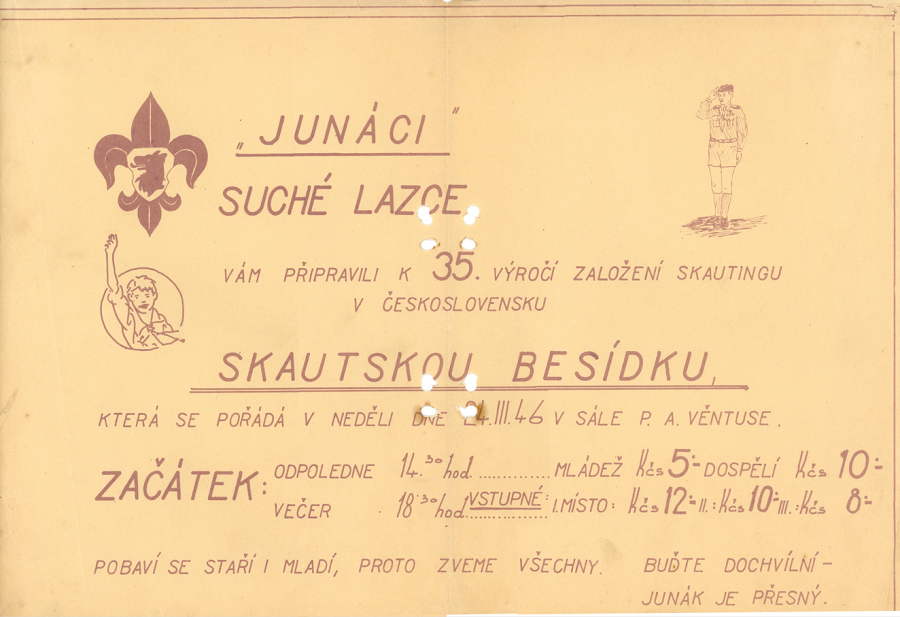 „JUNÁCI“
SUCHÉ LAZCE
VÁM PŘIPRAVILI K 35. VÝROČÍ ZALOŽENÍ SKAUTINGU
V ČESKOSLOVENSKU
SKAUTSKOU BESÍDKU,
KTERÁ SE POŘÁDÁ V NEDĚLI DNE 24.III.46 V SÁLE P. A. VĚNTUSE.
ZAČÁTEK: ODPOLEDNE 14.30 hod............. MLÁDEŽ Kčs 5:- DOSPĚLÍ Kčs 10:-
VEČER 18.30 hod. VSTUPNÉ: I.MÍSTO: Kčs 12:- II.: Kčs 10:- III.: Kčs 8:-
POBAVÍ SE STAŘÍ I MLADÍ, PROTO ZVEME VŠECHNY. BUĎTE DOCHVÍLNÍ –
JUNÁK JE PŘESNÝ.